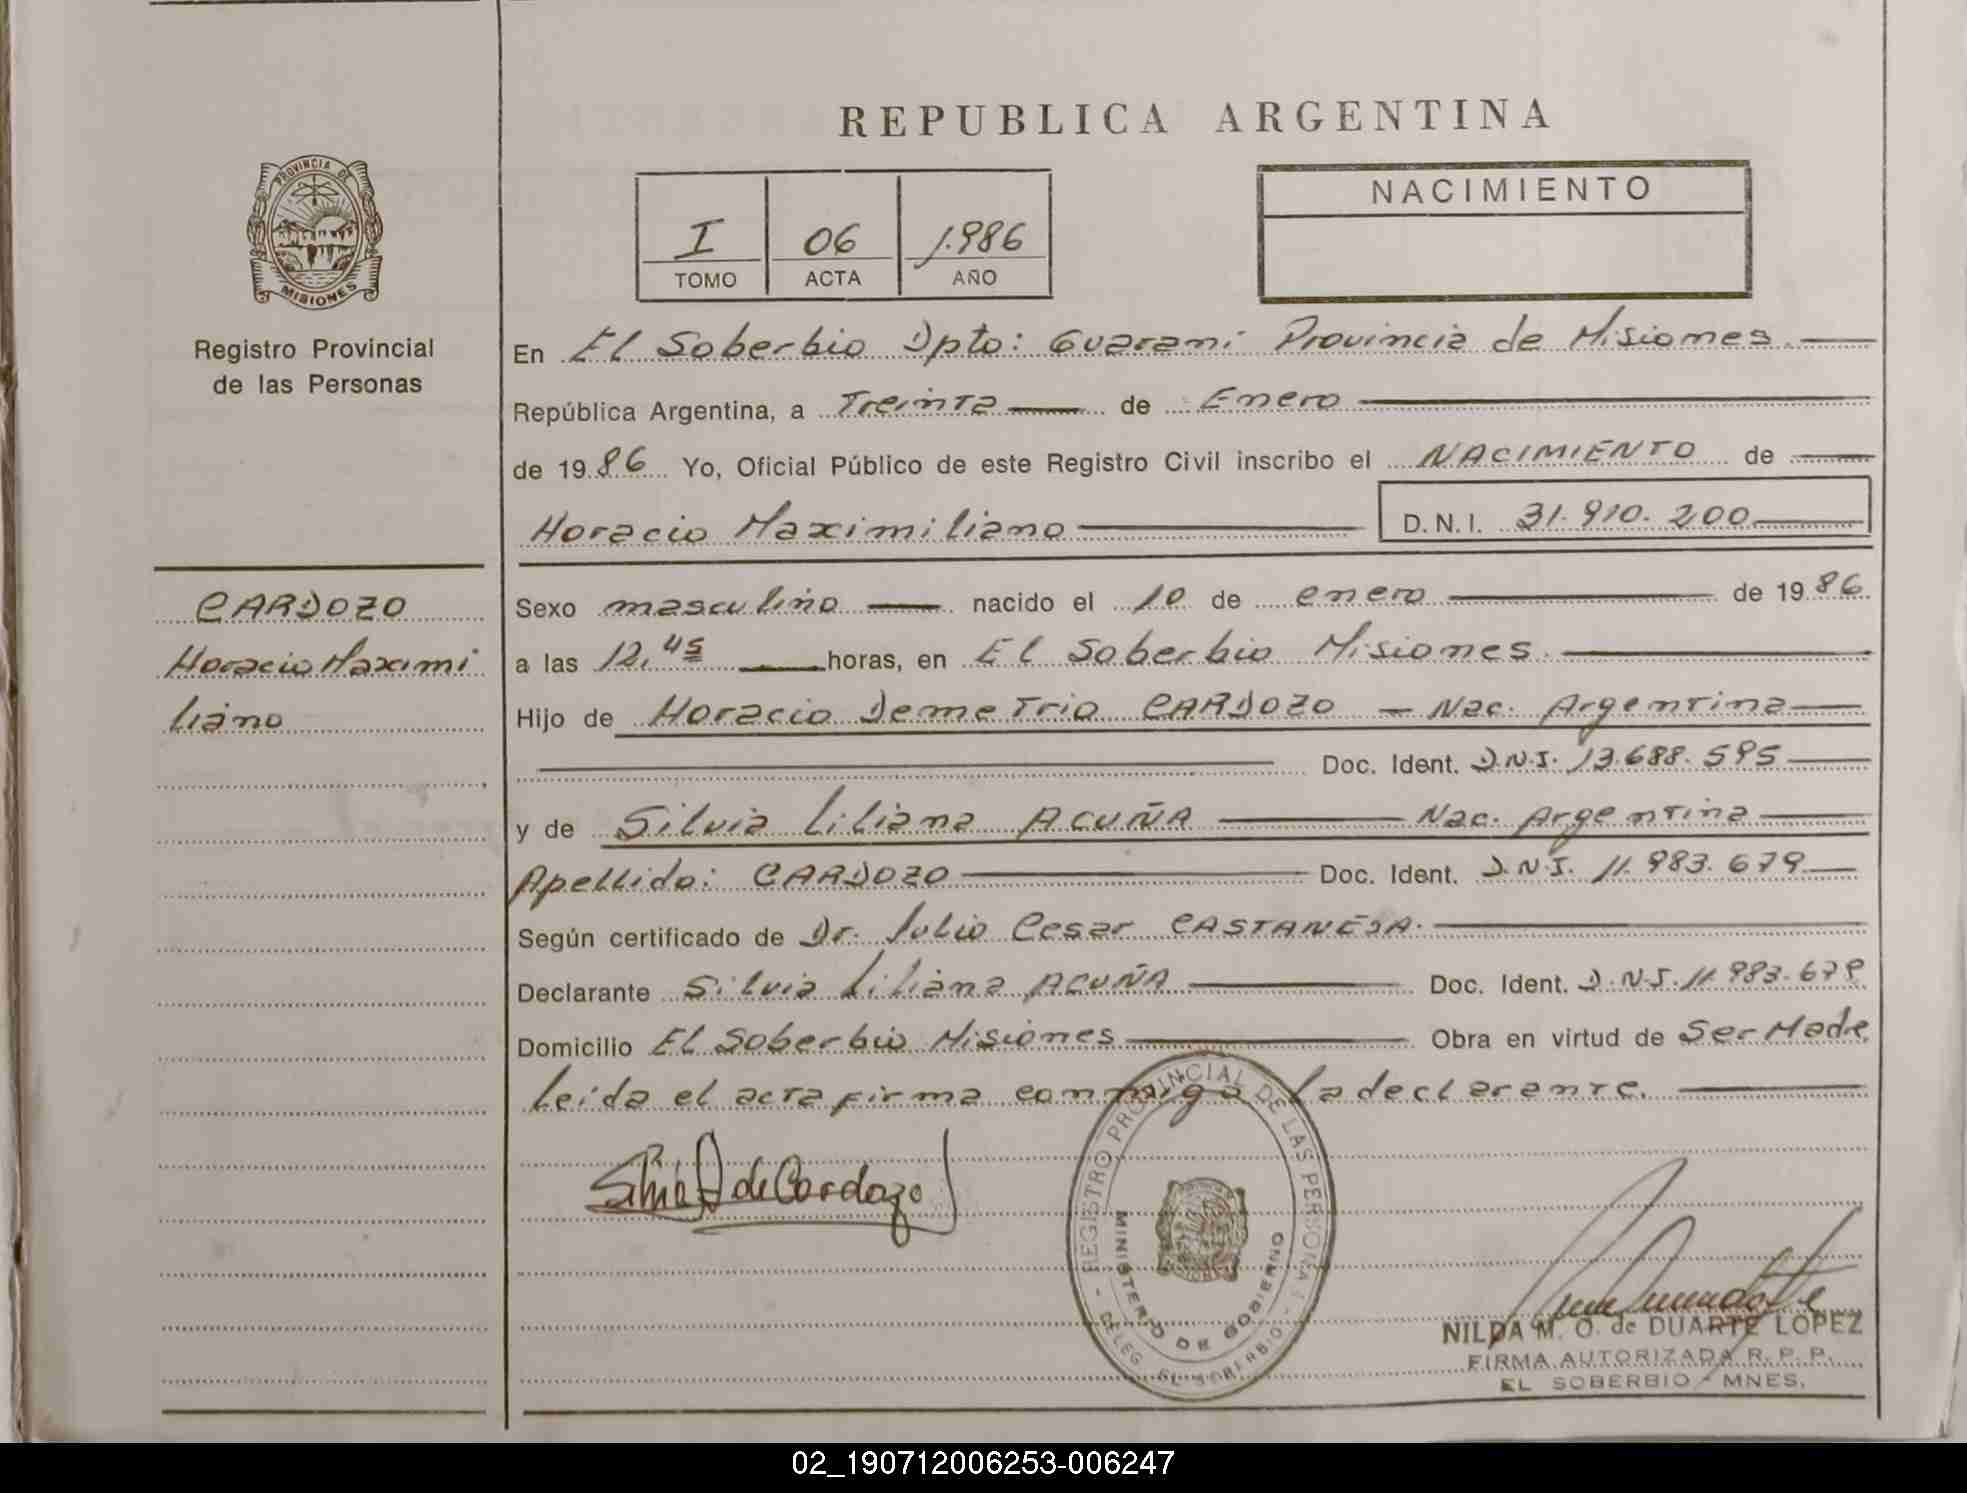 REPUBLICA ARGENTINA
PROVINCIA DE
MISIONES
Registro Provincial
de las Personas
I
TOMO
06
ACTA
1.986
AÑO
NACIMIENTO
En El Soberbio Dpto: Guarani Provincia de Misiones.
República Argentina, a Treinta de Enero
de 1986 Yo, Oficial Público de este Registro Civil inscribo el NACIMIENTO de
Horacio Maximiliano D.N.I. 31.910.200
CARDOZO
Horacio Maximi
liano
Sexo masculino nacido el 10 de enero de 1986
a las 12,45 horas, en El Soberbio Misiones.
Hijo de Horacio Demetrio CARDOZO - Nac. Argentina
Doc. Ident. D.N.I. 13.688.595
y de Silvia Liliana ACUÑA Nac. Argentina
Apellido: CARDOZO Doc. Ident. D.N.I. 11.983.679
Según certificado de Dr. Julio Cesar CASTANEJA.
Declarante Silvia Liliana ACUÑA Doc. Ident. D.N.I. 11.983.679
Domicilio El Soberbio Misiones Obra en virtud de Ser Madre,
Leida el acta firma conmigo la declarente.
Silvia A de Cardozo
REGISTRO PROVINCIAL DE LAS PERSONAS
MINISTERIO DE GOBIERNO
DELEG. EL SOBERBIO
NILDA M. O. de DUARTE LOPEZ
FIRMA AUTORIZADA R. P. P.
EL SOBERBIO - MNES.
02_190712006253-006247